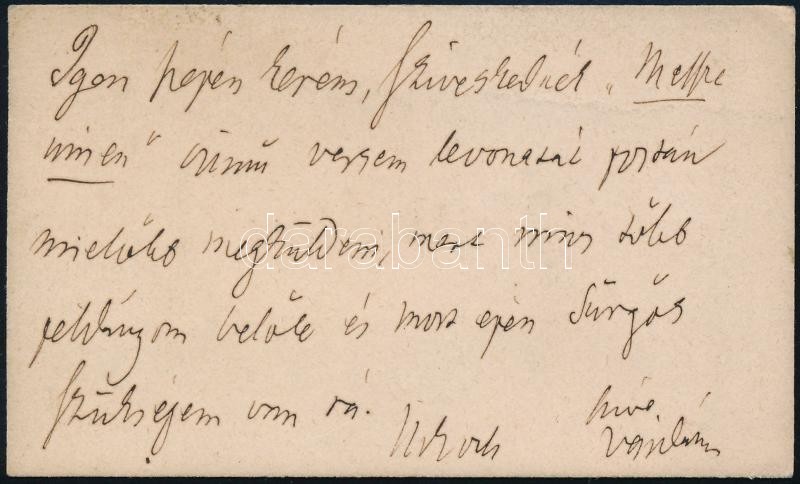 Igen szépen kérem, szíveskednék „Messze
innen" című versem levonatát postán
mielőbb megküldeni, mert nincs több
példányom belőle és most épen sürgős
szükségem van rá.
híve
darabanth